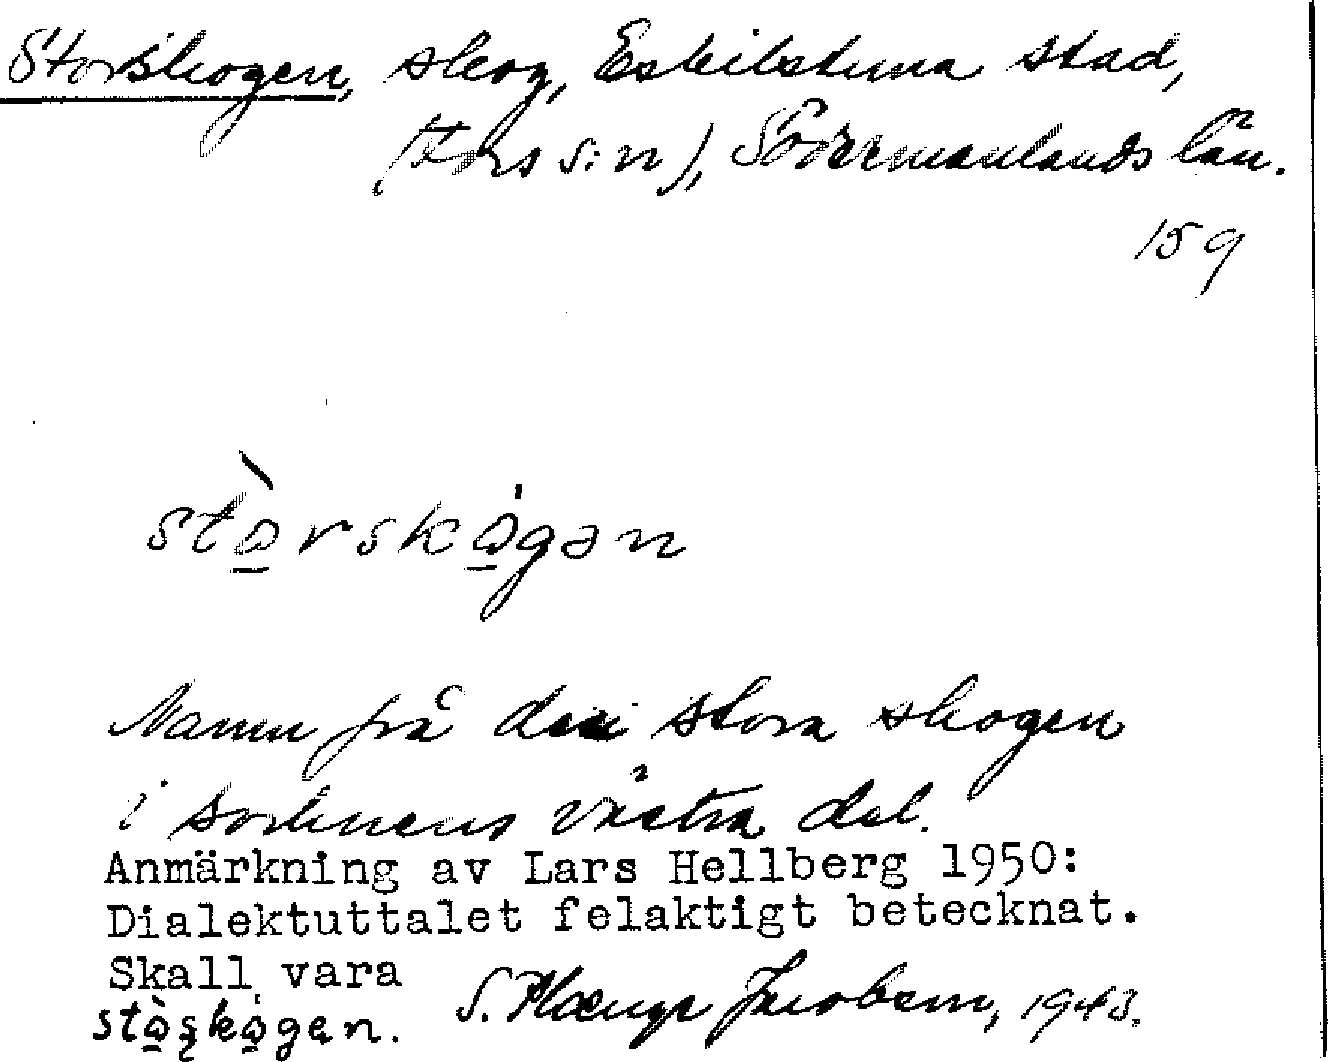 Storskogen, skog, Eskilstuna stad,
(Fors s:n), Södermanlands län.
159
stò̲rskó̲gən
Namn på den stora skogen
i socknens västra del.
Anmärkning av Lars Hellberg 1950:
Dialektuttalet felaktigt betecknat.
Skall vara
stò̲s̨kó̲gən.
S. Jacobsen, 1943.